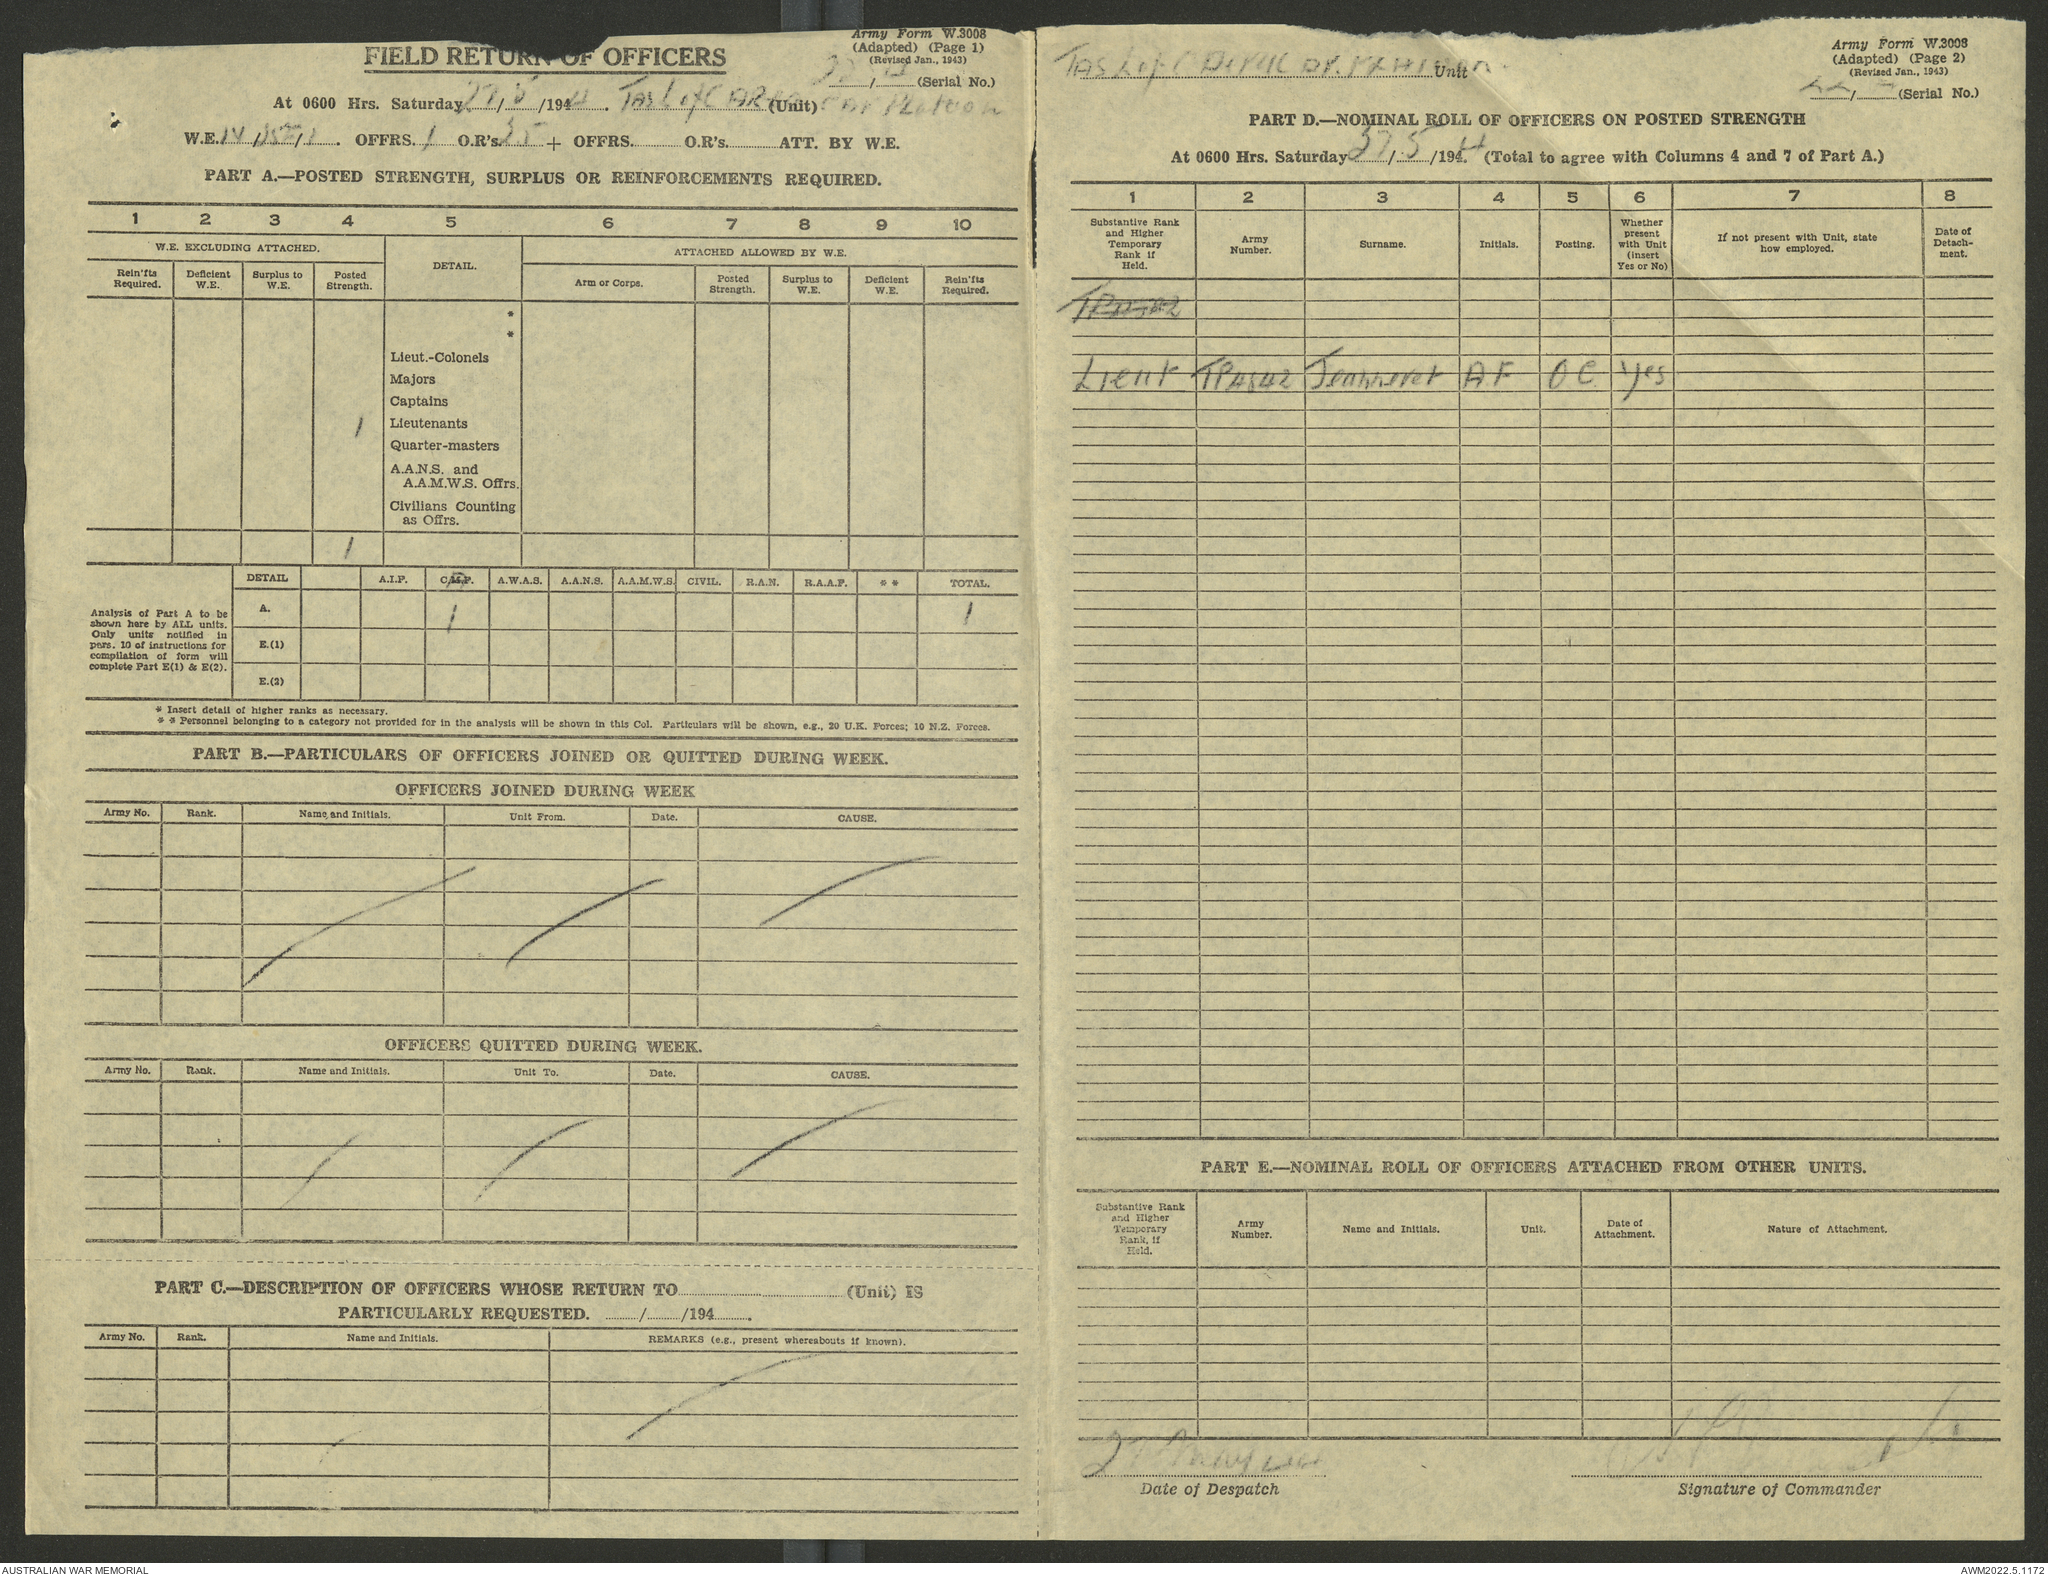 FIELD RETURN OF OFFICERS
Army Form W.3008
(Adapted) (Page 1)
(Revised Jan., 1943)
(Serial No.)
At 0600 Hrs. Saturday 27/5/1944. Tas L of C (Unit) Platoon
W.E. IV / / 1. OFFRS. 1 O.R's. 35 + OFFRS. O.R's. ATT. BY W.E.
PART A.—POSTED STRENGTH, SURPLUS OR REINFORCEMENTS REQUIRED.
1 2 3 4 5 6 7 8 9 10
W.E. EXCLUDING ATTACHED. DETAIL. ATTACHED ALLOWED BY W.E.
Rein'fts Required. Deficient W.E. Surplus to W.E. Posted Strength. Arm or Corps. Posted Strength. Surplus to W.E. Deficient W.E. Rein'fts Required.
*
*
Lieut.-Colonels
Majors
Captains
1 Lieutenants
Quarter-masters
A.A.N.S. and
A.A.M.W.S. Offrs.
Civilians Counting
as Offrs.
1
DETAIL A.I.F. C.M.F. A.W.A.S. A.A.N.S. A.A.M.W.S. CIVIL. R.A.N. R.A.A.F. * * TOTAL.
Analysis of Part A to be
shown here by ALL units.
Only units notified in
para. 10 of instructions for
compilation of form will
complete Part E(1) & E(2).
A. 1 1
E.(1)
E.(2)
* Insert detail of higher ranks as necessary.
* * Personnel belonging to a category not provided for in the analysis will be shown in this Col. Particulars will be shown, e.g., 20 U.K. Forces; 10 N.Z. Forces.
PART B.—PARTICULARS OF OFFICERS JOINED OR QUITTED DURING WEEK.
OFFICERS JOINED DURING WEEK
Army No. Rank. Name and Initials. Unit From. Date. CAUSE.
OFFICERS QUITTED DURING WEEK.
Army No. Rank. Name and Initials. Unit To. Date. CAUSE.
PART C.—DESCRIPTION OF OFFICERS WHOSE RETURN TO (Unit) IS
PARTICULARLY REQUESTED. / /194 .
Army No. Rank. Name and Initials. REMARKS (e.g., present whereabouts if known).
Tas L of C Unit
Army Form W.3008
(Adapted) (Page 2)
(Revised Jan., 1943)
(Serial No.)
PART D.—NOMINAL ROLL OF OFFICERS ON POSTED STRENGTH
At 0600 Hrs. Saturday 27/5/1944. (Total to agree with Columns 4 and 7 of Part A.)
1 2 3 4 5 6 7 8
Substantive Rank and Higher Temporary Rank if Held. Army Number. Surname. Initials. Posting. Whether present with Unit (insert Yes or No) If not present with Unit, state how employed. Date of Detach-ment.
Lieut TP4842 Jeanneret AF OC Yes
PART E.—NOMINAL ROLL OF OFFICERS ATTACHED FROM OTHER UNITS.
Substantive Rank and Higher Temporary Rank, if Held. Army Number. Name and Initials. Unit. Date of Attachment. Nature of Attachment.
27 May
Date of Despatch
Signature of Commander
AUSTRALIAN WAR MEMORIAL
AWM2022.5.1172